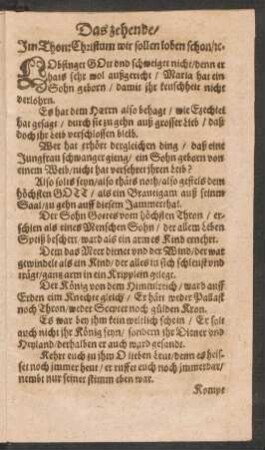 Das zehende/
Im Thon: Christum wir sollen loben schon/ ꝛc.
LObsinget GOtt vnd schweiget nicht/ denn er
hats sehr wol außgericht/ Maria hat ein
Sohn geborn/ damit jhr keuschheit nicht
verlohrn.
Es hat dem Herrn also behagt/ wie Ezechiel
hat gesagt/ durch sie zu gehn auß grosser Lieb/ daß
doch jhr Leib verschlossen blieb.
Wer hat erhört dergleichen ding/ daß eine
Jungfraw schwanger gieng/ ein Sohn geborn von
einem Weib/ nicht hat versehret jhren Leib?
Also solts seyn/ also thäts noth/ also gefiels dem
höchsten GOTT/ als ein Breutigam auß seinem
Saal/ zu gehn auff diesem Jammerthal.
Der Sohn Gottes vom höchsten Thron/ er-
schien als eines Menschen Sohn/ der allem Leben
Speiß beschert/ ward als ein armes Kind ernehrt.
Dem das Meer dienet vnd der Wind/ der wat
gewindelt als ein Kind/ der alles in sich schleust vnd
trägt/ gantz arm in ein Kripplein gelegt.
Der König von dem Himmelreich/ ward auff
Erden eim Knechte gleich/ Er hatt weder Pallast
noch Thron/ weder Scepter noch gülden Kron.
Es war bey jhm kein weltlich schein/ Er solt
auch nicht jhr König seyn/ sondern jhr Diener vnd
Heyland/ derhalben er auch ward gesandt.
Kehrt euch zu jhm O lieben Leut/ denn es heis-
set noch immer heut/ er ruffet euch noch jmmerdar/
nembt nur seiner stimm eben war.
Kompt